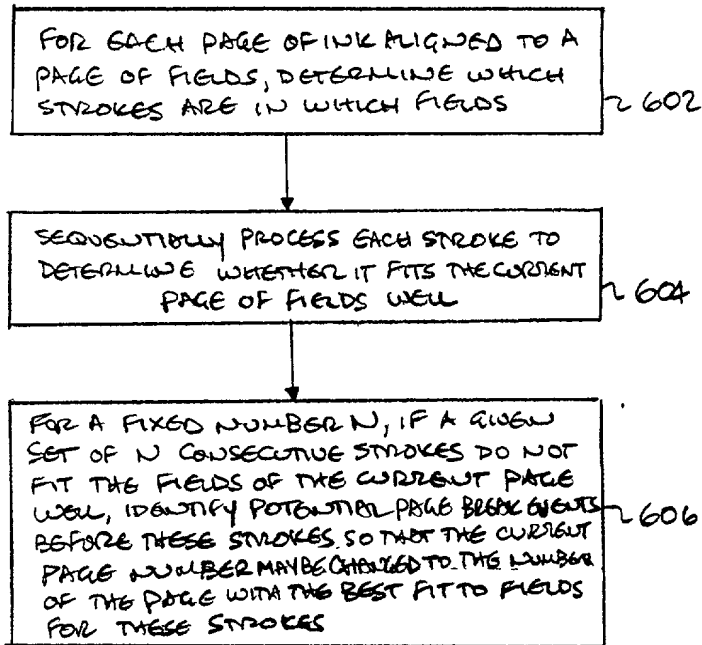 FOR EACH PAGE OF INK ALIGNED TO A
PAGE OF FIELDS, DETERMINE WHICH
STROKES ARE IN WHICH FIELDS
602
SEQUENTIALLY PROCESS EACH STROKE TO
DETERMINE WHETHER IT FITS THE CURRENT
PAGE OF FIELDS WELL
604
FOR A FIXED NUMBER N, IF A GIVEN
SET OF N CONSECUTIVE STROKES DO NOT
FIT THE FIELDS OF THE CURRENT PAGE
WELL, IDENTIFY POTENTIAL PAGE BREAK EVENTS
BEFORE THESE STROKES SO THAT THE CURRENT
PAGE NUMBER MAY BE CHANGED TO THE NUMBER
OF THE PAGE WITH THE BEST FIT TO FIELDS
FOR THESE STROKES
606